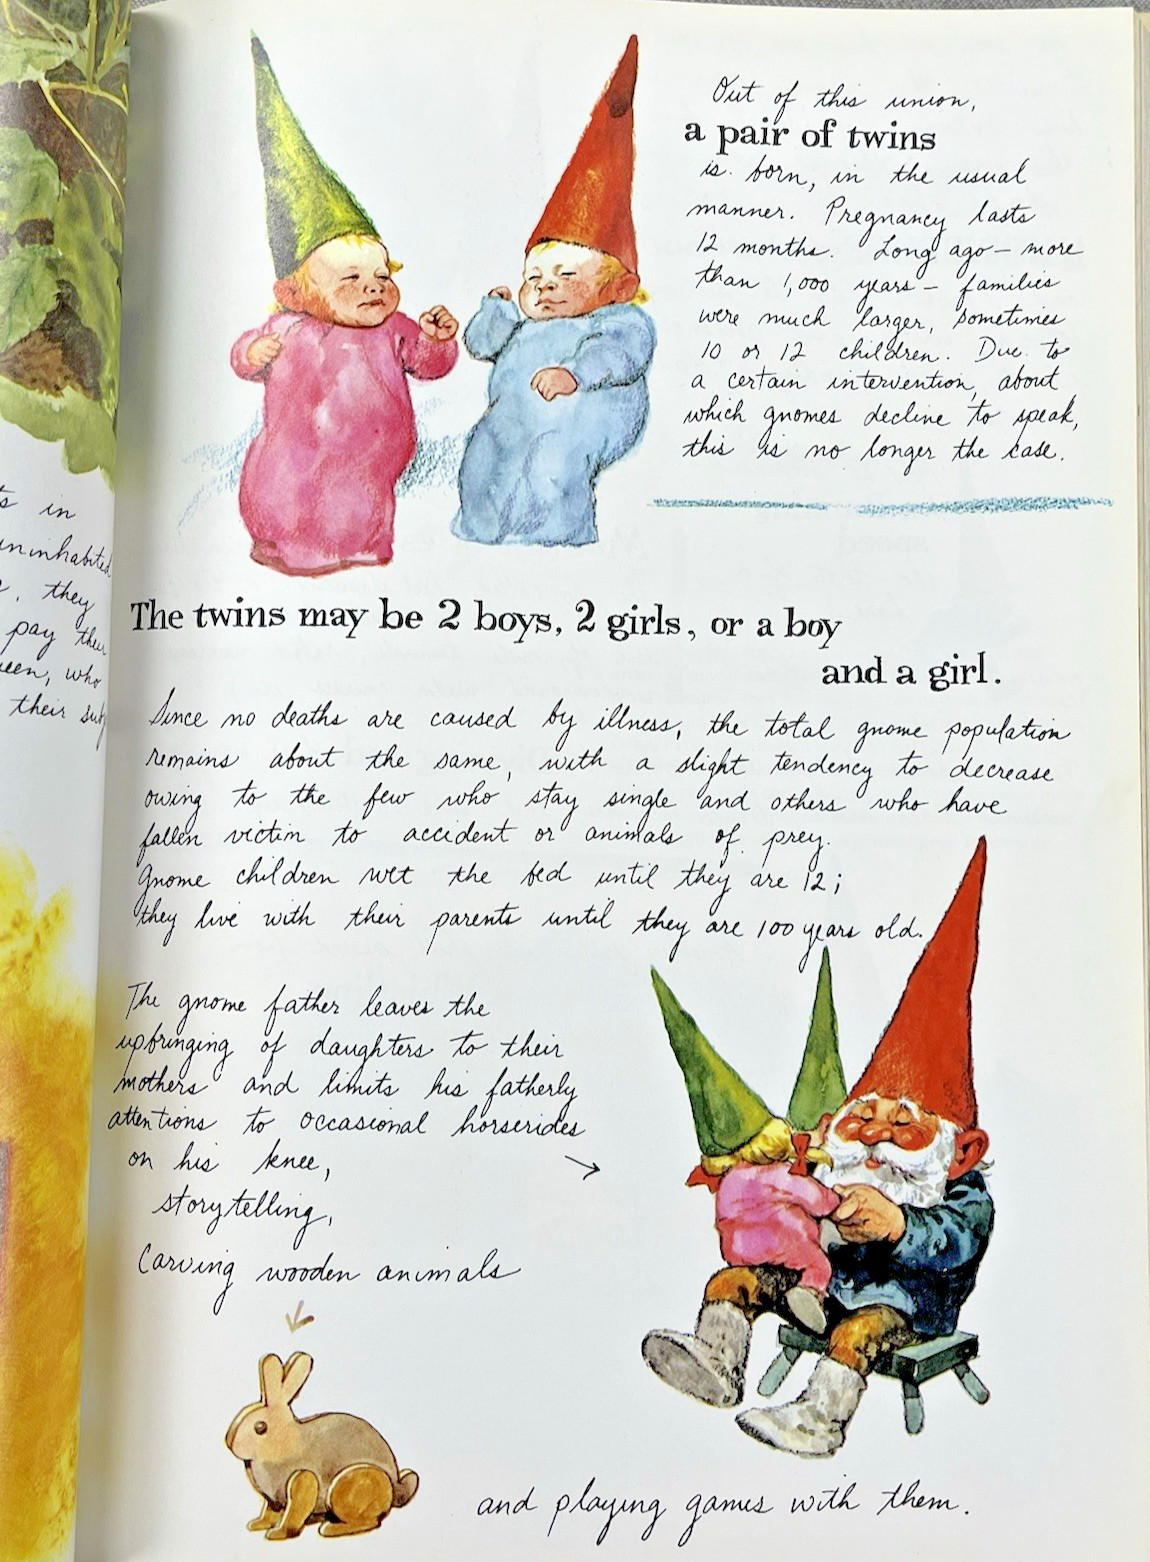 ts in
uninhabited
they
pay their
een, who
their sub
Out of this union,
a pair of twins
is born, in the usual
manner. Pregnancy lasts
12 months. Long ago — more
than 1,000 years — families
were much larger, sometimes
10 or 12 children. Due to
a certain intervention, about
which gnomes decline to speak,
this is no longer the case.
The twins may be 2 boys, 2 girls, or a boy
and a girl.
Since no deaths are caused by illness, the total gnome population
remains about the same, with a slight tendency to decrease
owing to the few who stay single and others who have
fallen victim to accident or animals of prey.
Gnome children wet the bed until they are 12;
they live with their parents until they are 100 years old.
The gnome father leaves the
upbringing of daughters to their
mothers and limits his fatherly
attentions to occasional horserides
on his knee,
storytelling,
Carving wooden animals
and playing games with them.